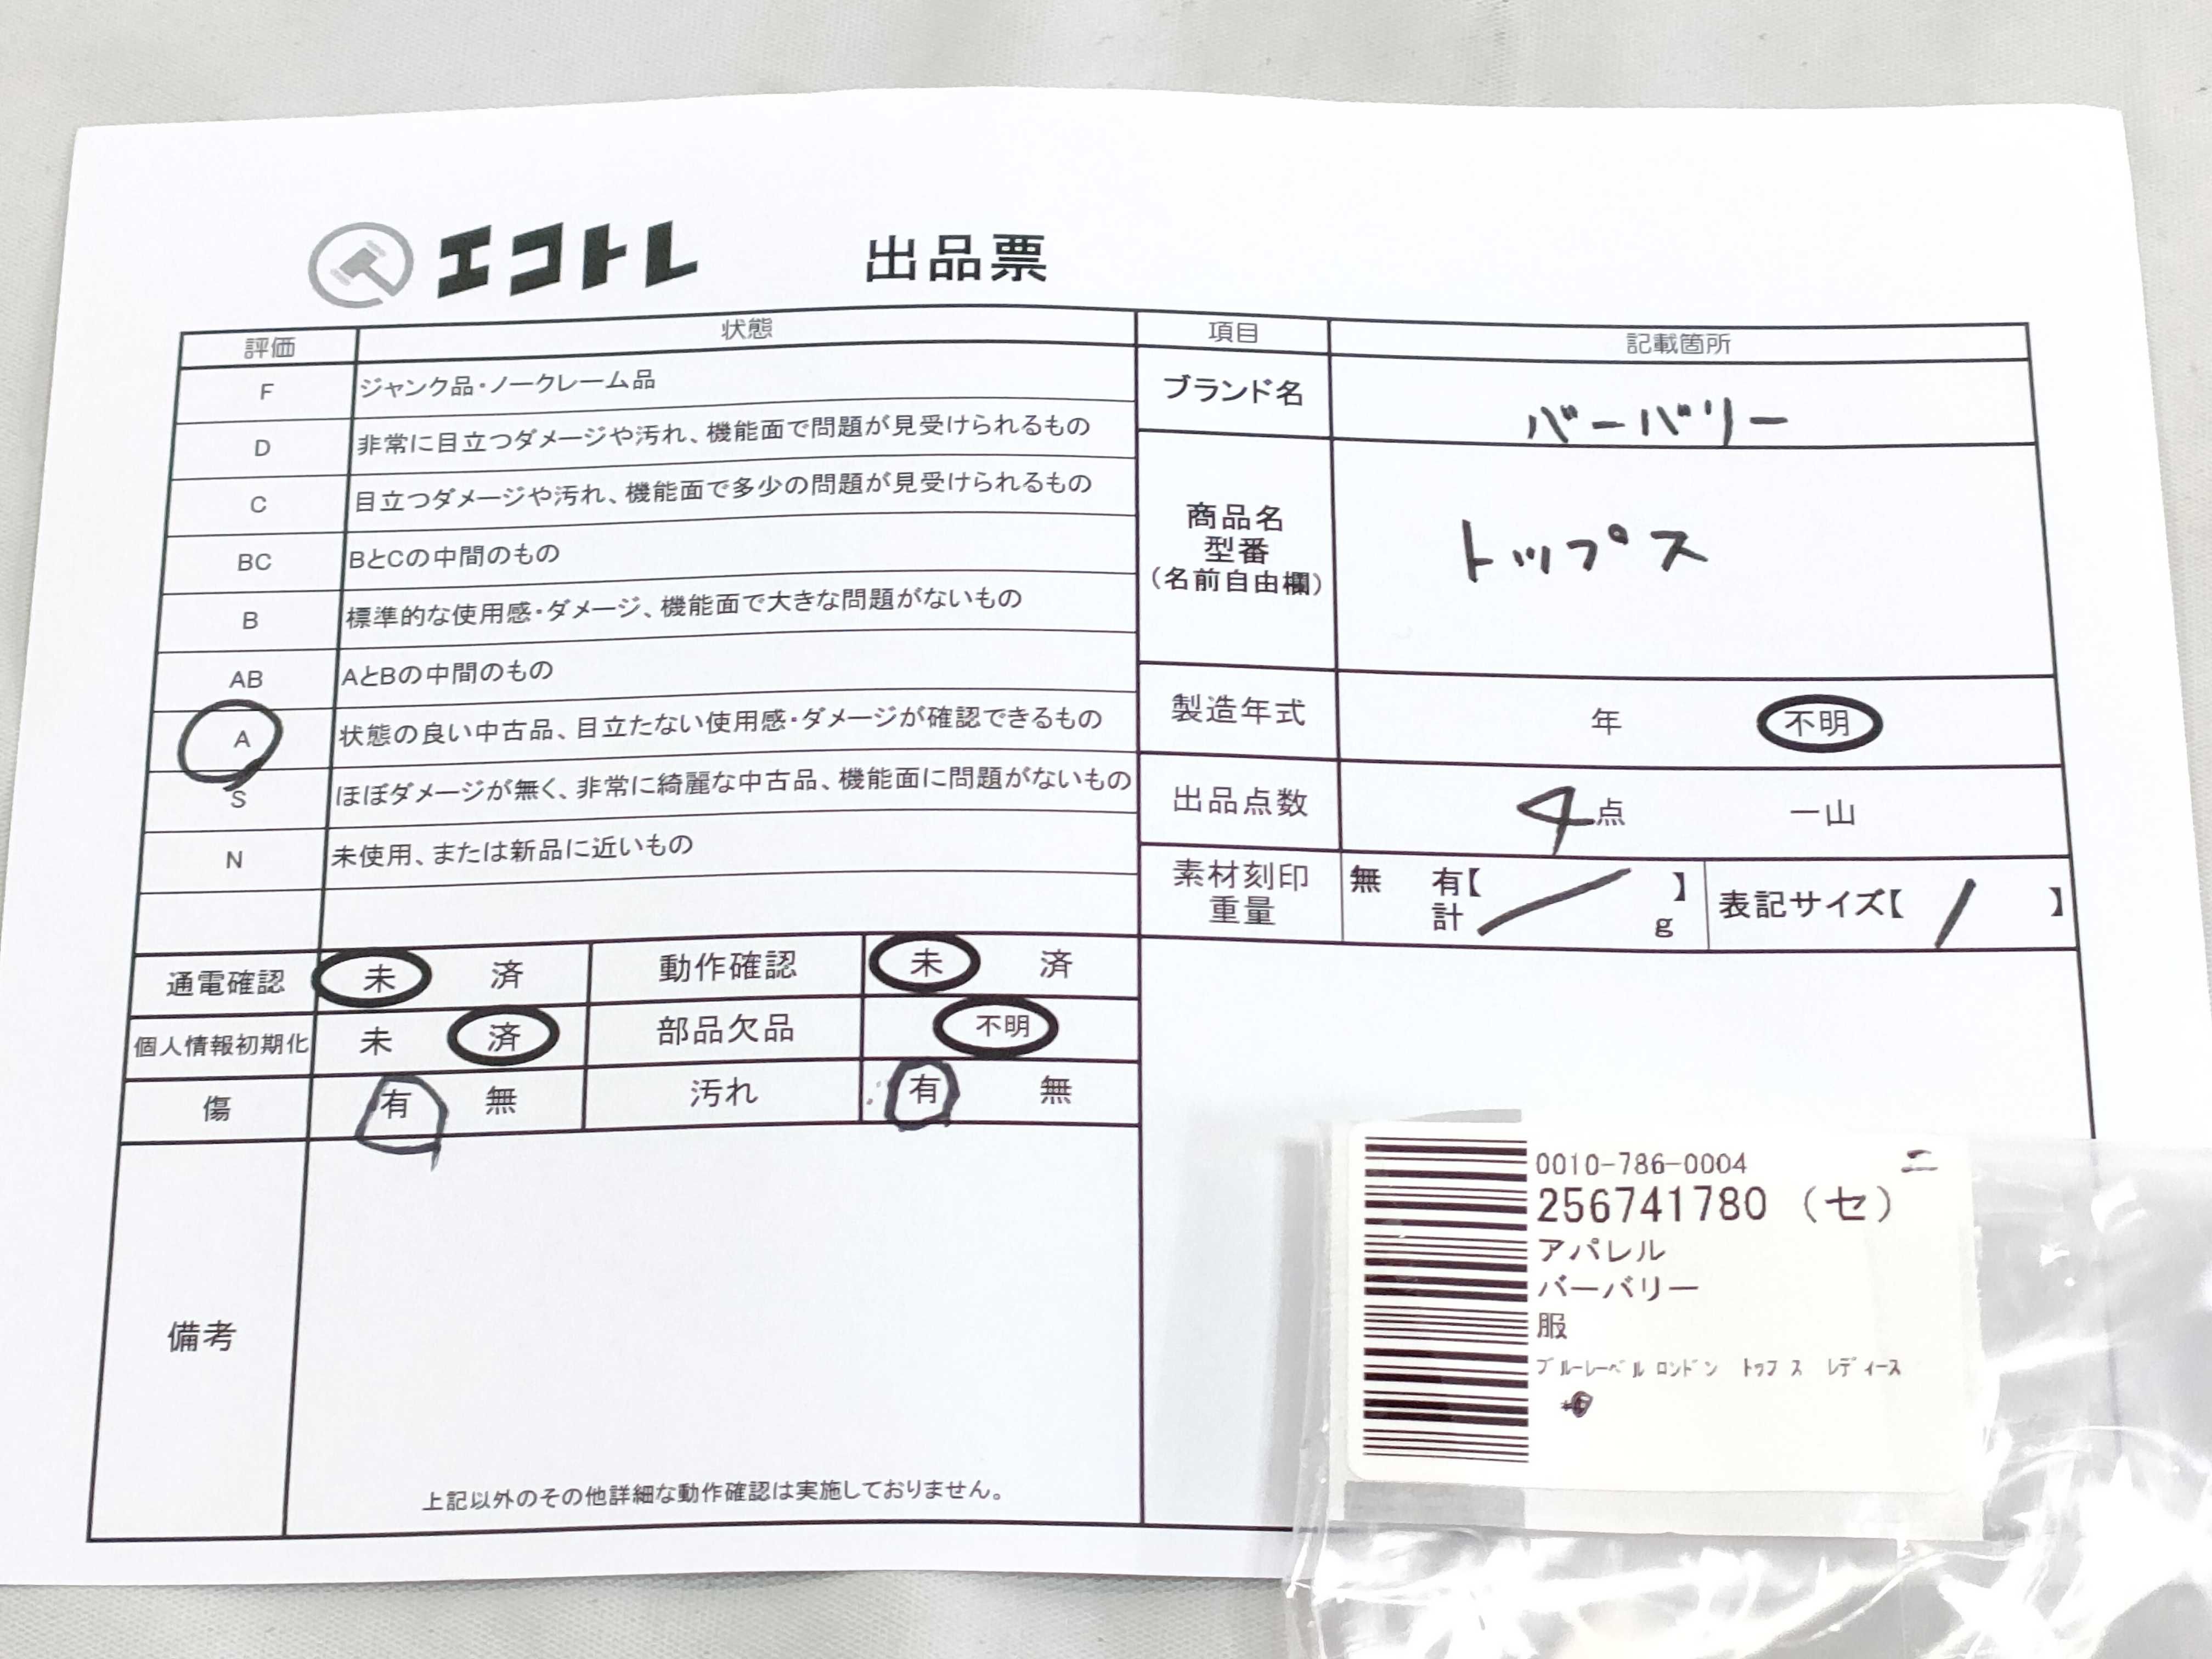 エコトレ 出品票
評価 状態
F ジャンク品・ノークレーム品
D 非常に目立つダメージや汚れ、機能面で問題が見受けられるもの
C 目立つダメージや汚れ、機能面で多少の問題が見受けられるもの
BC BとCの中間のもの
B 標準的な使用感・ダメージ、機能面で大きな問題がないもの
AB AとBの中間のもの
A 状態の良い中古品、目立たない使用感・ダメージが確認できるもの
S ほぼダメージが無く、非常に綺麗な中古品、機能面に問題がないもの
N 未使用、または新品に近いもの
通電確認 未 済 動作確認 未 済
個人情報初期化 未 済 部品欠品 不明
傷 有 無 汚れ 有 無
備考
上記以外のその他詳細な動作確認は実施しておりません。
項目 記載箇所
ブランド名 バーバリー
商品名
型番
(名前自由欄)
トップス
製造年式 年 不明
出品点数 4点 一山
素材刻印 無 有【 】 表記サイズ【 / 】
重量 計 g
0010-786-0004 ニ
256741780 (セ)
アパレル
バーバリー
服
ブルーレーベル ロンドン トップス レディース